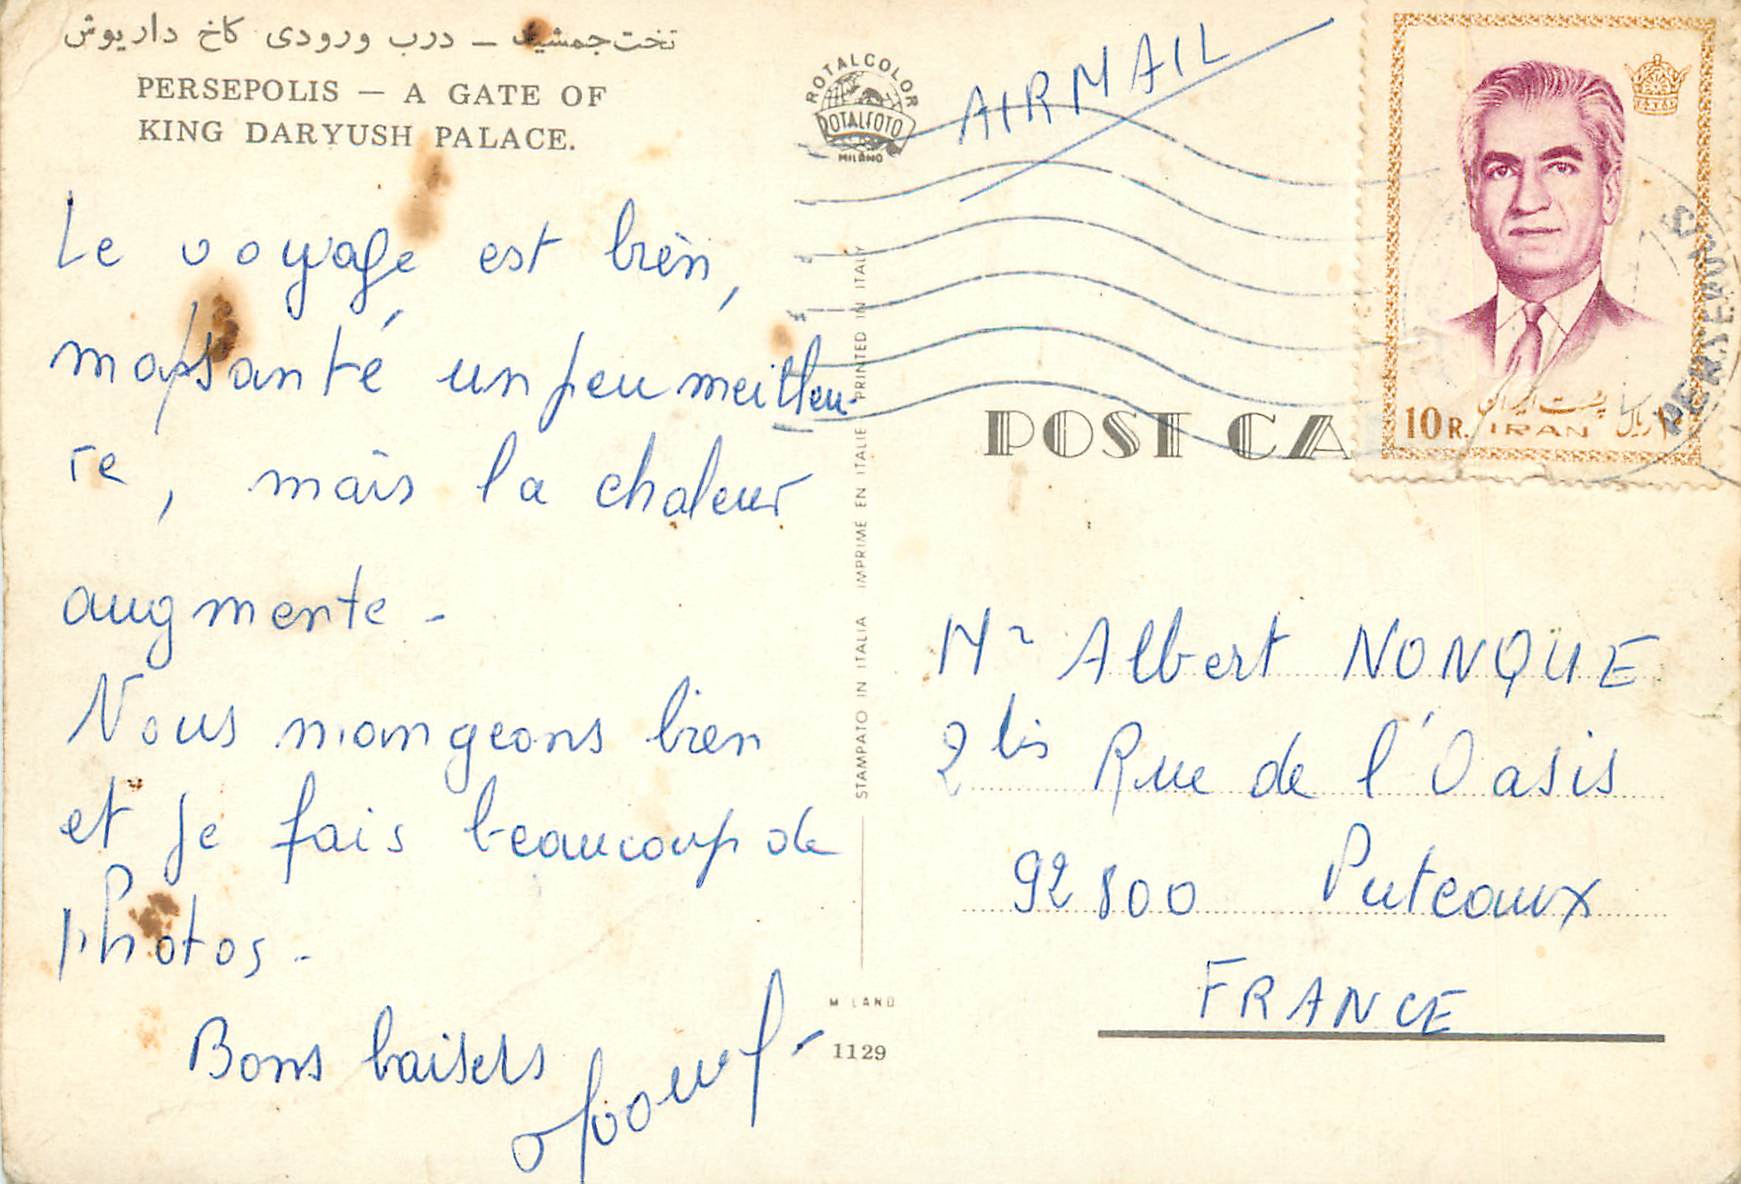 تخت جمشید – درب ورودی کاخ داریوش
PERSEPOLIS — A GATE OF
KING DARYUSH PALACE.
Le voyage est bien,
ma santé un peu meilleu-
re, mais la chaleur
augmente -
Nous mangeons bien
et je fais beaucoup de
Photos -
Bons baisers
ROTALCOLOR
ROTALFOTO
MILANO
AIRMAIL
STAMPATO IN ITALIA IMPRIME EN ITALIE PRINTED IN ITALY
MILANO
1129
POST CA
10 R.
پست ایران
IRAN
۱۰ ریال
Mr Albert NONQUE
2 bis Rue de l'Oasis
92800 Puteaux
FRANCE